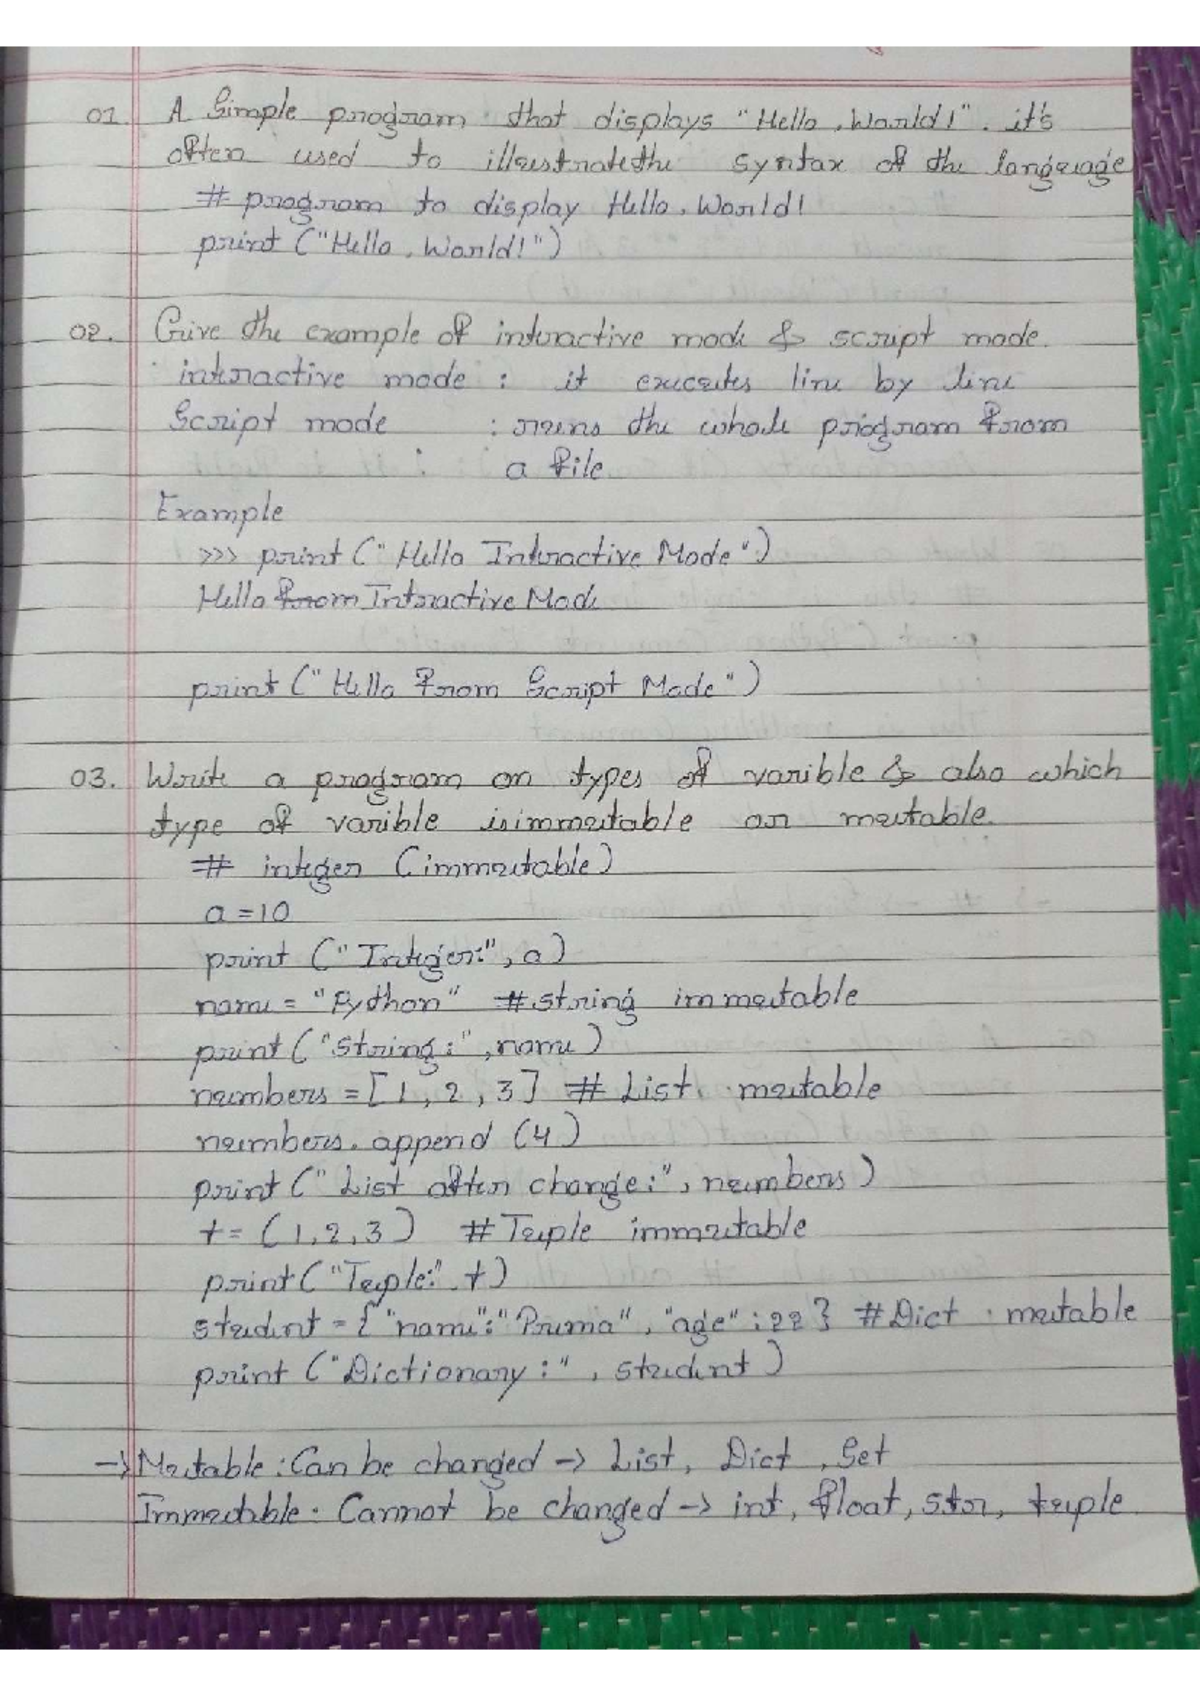 01. A Simple program that displays "Hello, World!". it's
often used to illustratethe syntax of the language
# program to display Hello, World!
print ("Hello, World!")
02. Give the example of interactive mode & script mode.
interactive mode : it executes line by line
Script mode : runs the whole program from
: a file.
Example
>>> print ("Hello Interactive Mode")
Hello from Interactive Mode
print ("Hello From Script Mode")
03. Write a program on types of varible & also which
type of varible is immutable or mutable.
# integer (immutable)
a = 10
print ("Integer:", a)
name = "Python" # string immutable
print ("String:", name)
numbers = [1, 2, 3] # List. mutable
numbers. append (4)
print ("List after change:", numbers)
t = (1, 2, 3) # Tuple immutable
print ("Tuple:", t)
student = {"name":"Prima", "age":22} # Dict . mutable
print ("Dictionary:", student)
→ Mutable : Can be changed → List, Dict, Set
Immutable : Cannot be changed → int, float, str, tuple